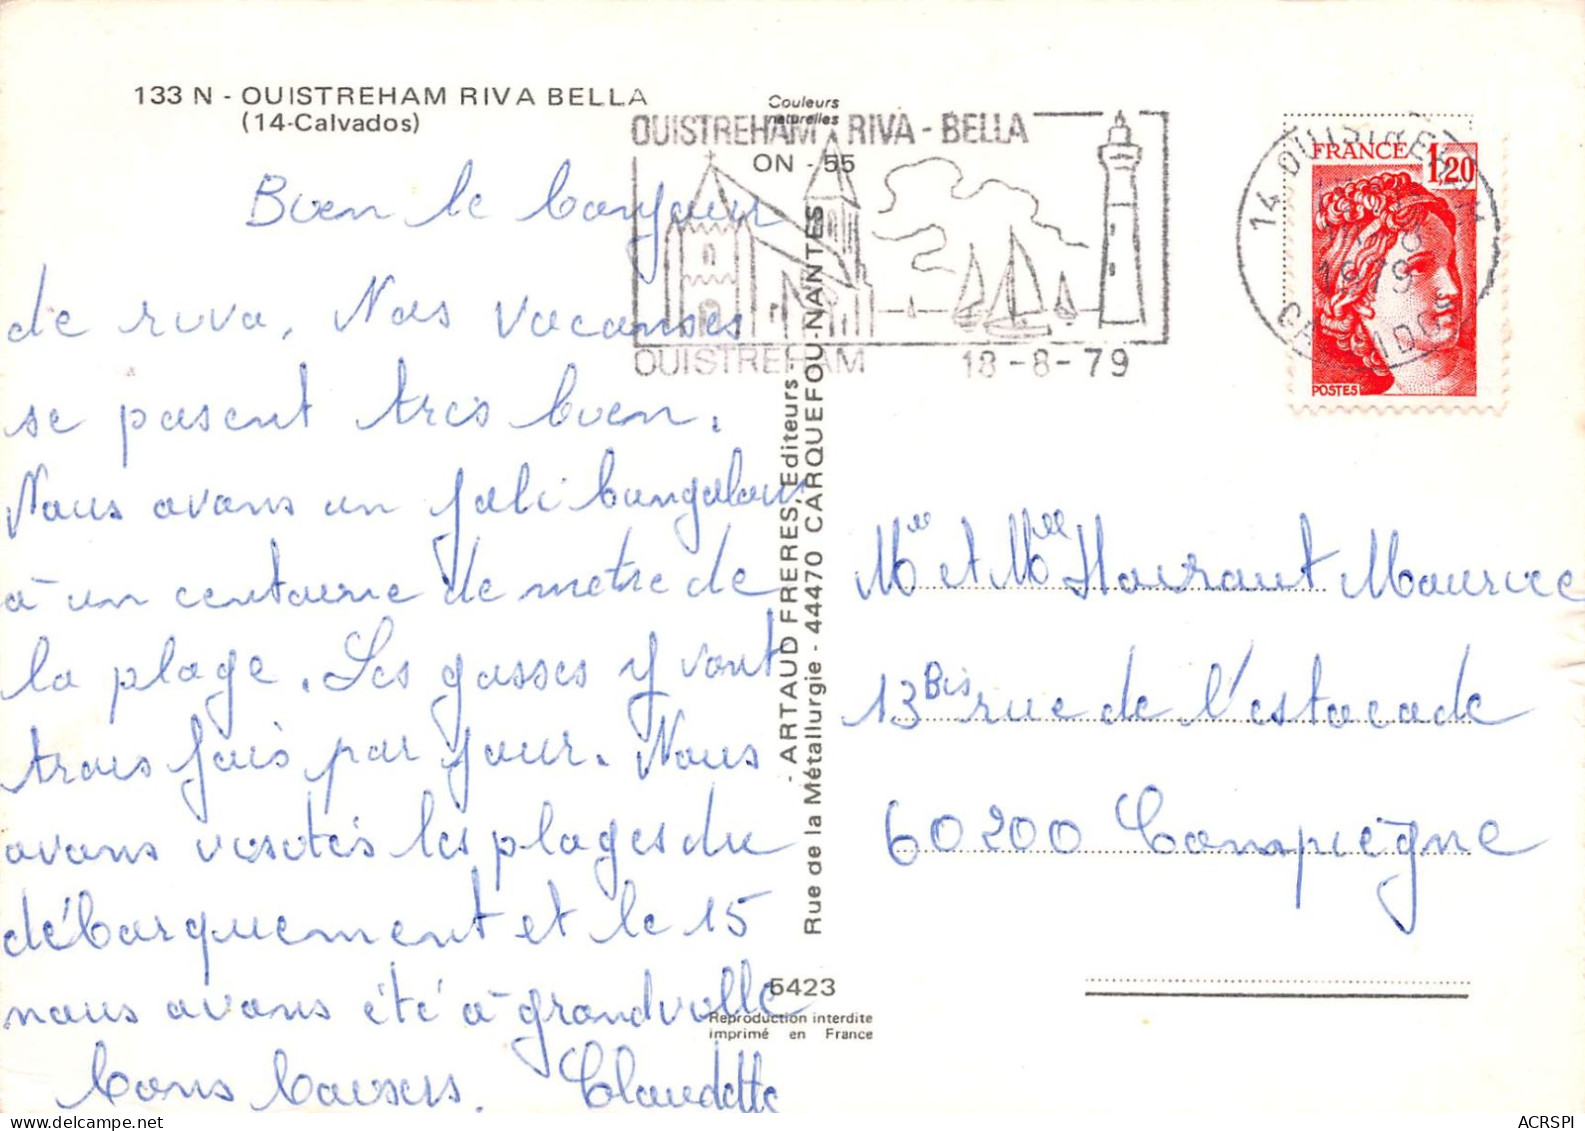 133 N - OUISTREHAM RIVA BELLA
(14-Calvados)
Couleurs
naturelles
ON - 55
OUISTREHAM . RIVA - BELLA
OUISTREHAM 18-8-79
14 OUISTREHAM
1979
CALVADOS
FRANCE 1,20
POSTES
Bien le bonjour
de riva, Nos vacanses
se pasent tres bien.
Nous avons un joli bungalow
à un centaine de metre de
la plage. Les gosses y vont
trois fois par jour. Nous
avons visités les plages du
débarquement et le 15
nous avons été à grandville
bons baisers. Claudette
- ARTAUD FRERES, Editeurs -
Rue de la Métallurgie - 44470 CARQUEFOU-NANTES
Mr et Mme Hairaut Maurice
13 Bis rue de l'estacade
60200 Compiègne
5423
Reproduction interdite
imprimé en France
ACRSPI